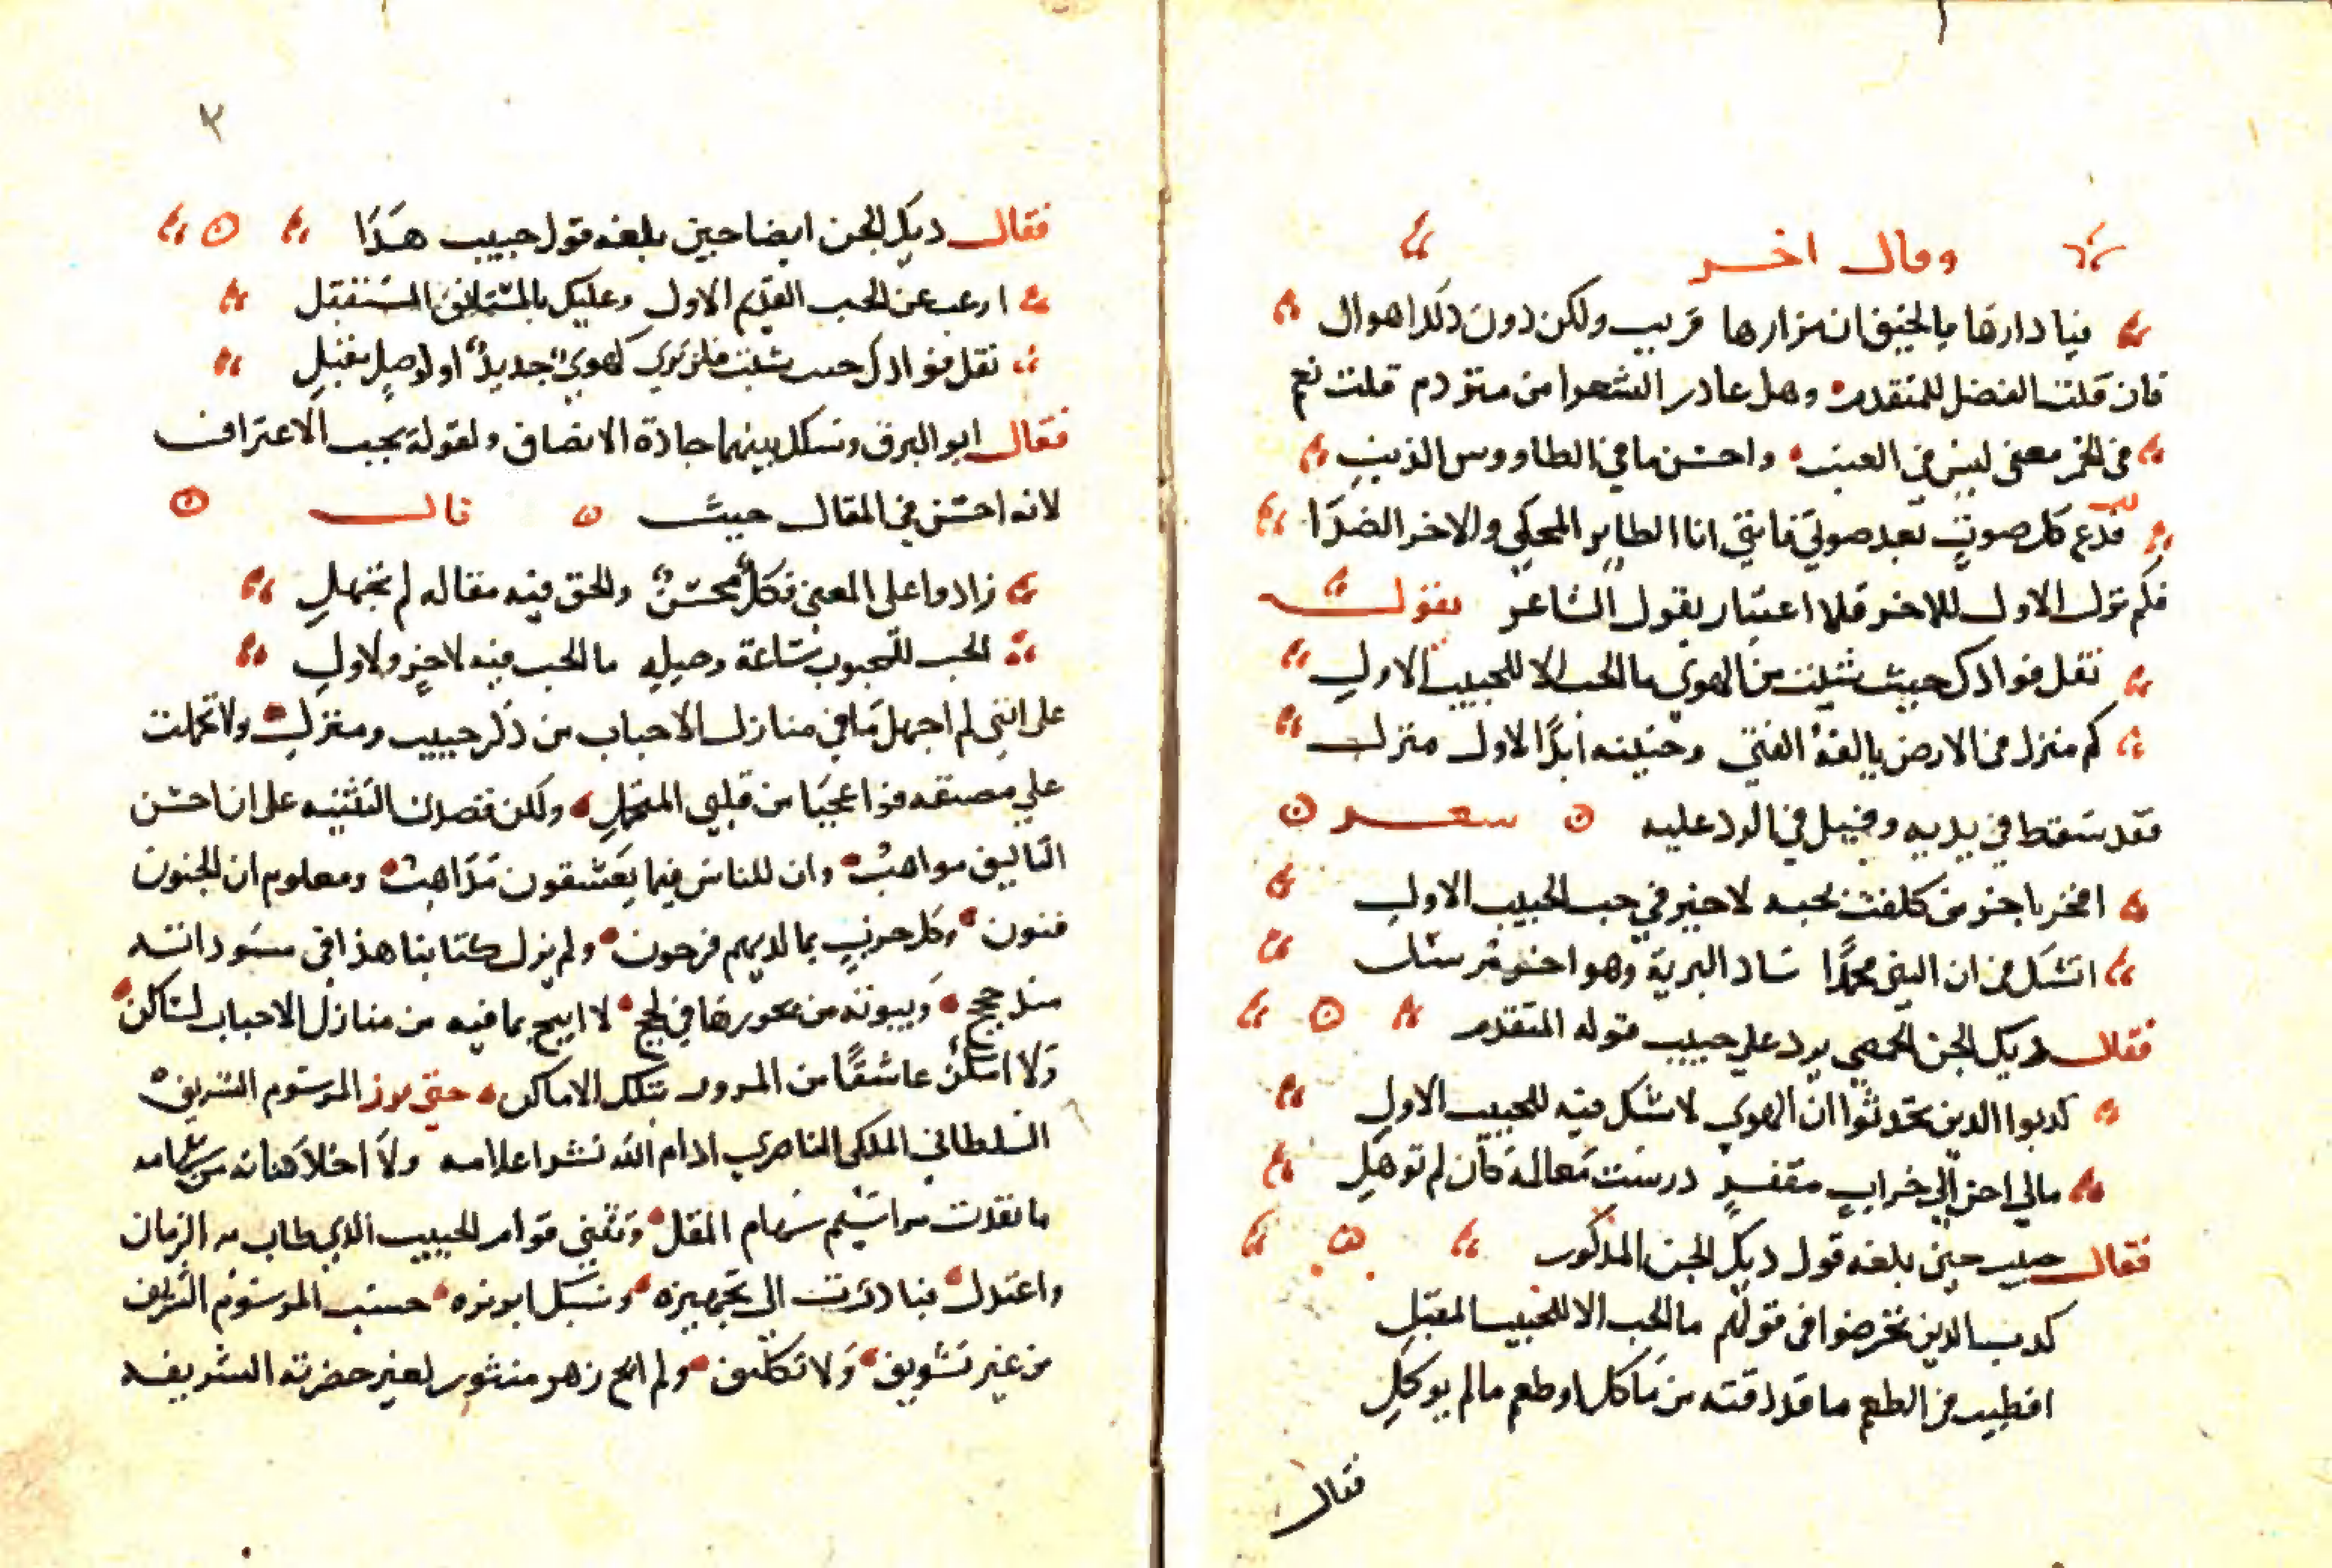 وقال اخر
فيا دارها بالخيف ان مزارها قريب ولكن دون ذلك اهوال
فان قلت الفضل للمتقدم وهل غادر الشعرا من متردم قلت نعم
في الخمر معنى ليس في العنب واحسن ما في الطاووس الذنب
فدع كل صوت بعد صوتي فانني انا الطاير المحكي والاخر الصدا
فكم ترك الاول للاخر فلا اعتبار بقول الشاعر بقوله
نقل فوادك حيث شيت من الهوي ما الحب الا للحبيب الاول
كم منزل في الارض يالفه الفتى وحنينه أبدًا لاول منزل
فقد سقط في يديه وقيل في الرد عليه شعر
افخر باخر من كلفت بحبه لا خير في حب الحبيب الاول
اتشك في ان النبي محمدًا ساد البرية وهو اخر مرسل
فقال ديك الجن الحمصي يرد علي حبيب قوله المتقدم
كدبوا الدين تحدثوا ان الهوي لا شك فيه للحبيب الاول
مالي احن الي خراب مقفر درست معالمه كأن لم توهل
فقال حبيب حين بلغه قول ديك الجن المذكور
كدب الدين تخرضوا في قولهم ما الحب الا للحبيب المقبل
افطيب في الطعم ما قد دقته من مأكل او طعم ما لم يوكل
فقال
٢
فقال ديك الجن ايضا حين بلغه قول حبيب هذا
ارغب عن الحب القديم الاول وعليك بالمستانف المستقبل
نقل فوادك حيث شيت فلن تري كهوي جديد او لوصل مقبل
فقال ابو البرق وسلك بينهما جادة الانصاف ولقوله يجب الاعتراف
لانه احسن في المقال حيث قال
زادوا على المعنى فكل محسن والحق فيه مقاله لم تجهل
الحب للمحبوب ساعة وصله ما الحب فيه لاخر ولاول
على انني لم اجهل ما في منازل الاحباب من ذكر حبيب ومنزل ولا تحملت
علي مصنفه فواعجبا من قلبي المتحمل ولكن قصدت التنبيه على ان احسن
التاليف مواهب وان للناس فيما يعشقون مذاهب ومعلوم ان الجنون
فنون وكل حزب بما لديهم فرحون ولم يزل كتابنا هذا في مسوداته
منذ حجج وبيوته من بحورها في لجج لا ابيح بما فيه من منازل الاحباب لساكن
ولا امكن عاشقًا من المرور بتلك الاماكن حتى برز المرسوم الشريف
السلطاني الملكي الناصري ادام الله نشر اعلامه ولا اخلا كنانه من سهامه
ما نفدت مراسيم سهام المقل وتثني قوام الحبيب الذي طاب به الزمان
واعتدل فبادرت الى تجهيزه وسبك ابريزه حسب المرسوم الشريف
من غير تسويف ولا تكليف ولم ابح زهر منثوره لغير حضرته الشريفه